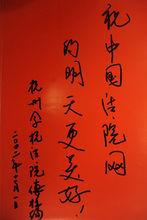 祝中国法院网
的明天更美好！
杭州
法院
二〇〇二年十一月一日